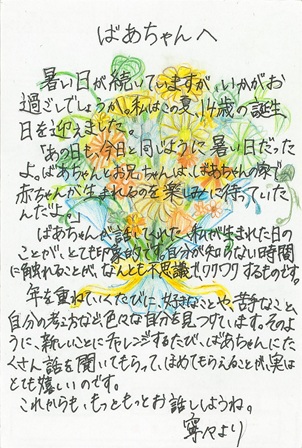 ばあちゃんへ
暑い日が続いていますが、いかがお
過ごしでしょうか。私はこの夏、14歳の誕生
日を迎えました。
「あの日も今日と同じように暑い日だった
よ。ばあちゃんとお兄ちゃんは、ばあちゃの家で
赤ちゃんが生まれるのを楽しみに待っていた
んだよ。」
ばあちゃんが話してくれた、私が生まれた日の
ことが、とても印象的です。自分が知らない時間
に触れることが、なんとも不思議でワクワクするものです。
年を重ねていくたびに、好きなことや、苦手なこと、
自分の考え方など、色々な自分を見つけています。そのよ
うに、新しいことにチャレンジするたび、ばあちゃんにた
くさん話を聞いてもらって、ほめてもらえることが、実は
とても嬉しいのです。
これからも、もっともっとお話しようね。
寧々より